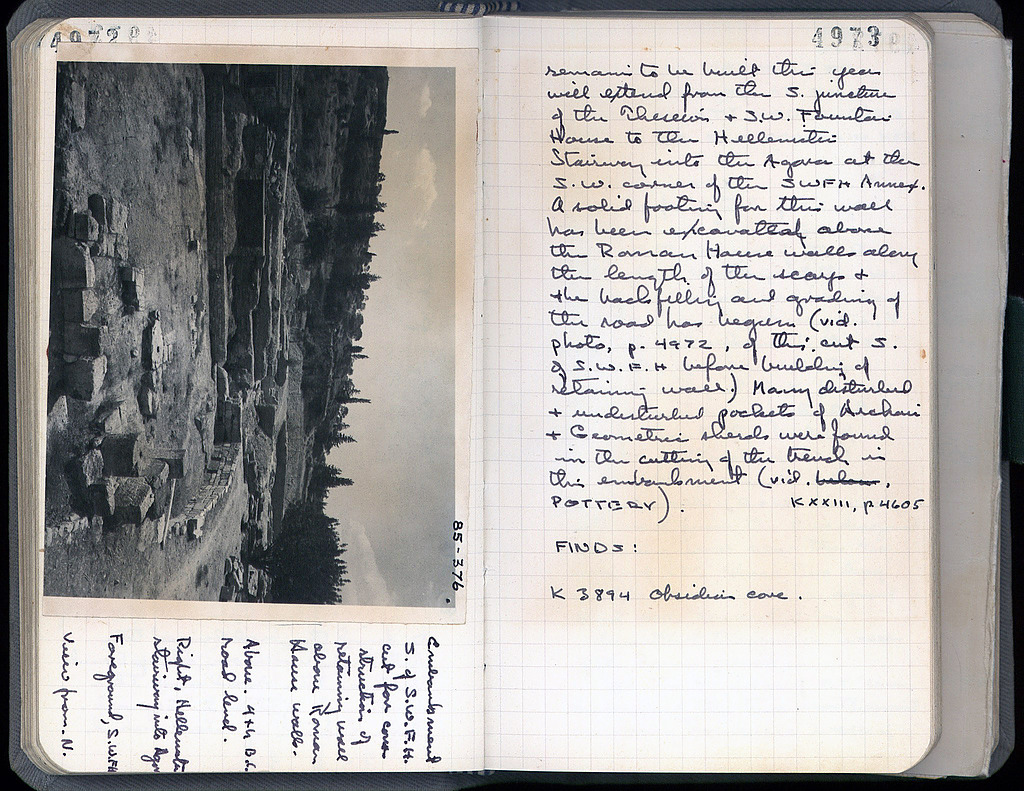 4972
85-376
Embankment
S. of S.W.F.H.
cut for con-
struction of
retaining wall
above Roman
House walls.
Above. 4th B.C.
road level.
Right, Hellenistic
stairway into Agora
Foreground, S.W.FH
View from N.
4973
remain to be built this year
will extend from the S. juncture
of the Theseion + S.W. Fountain
House to the Hellenistic
Stairway into the Agora at the
S.W. corner of the SWFH Annex.
A solid footing for this wall
has been excavated above
the Roman House walls along
the length of the scarp +
the backfilling and grading of
the road has begun (vid.
photo, p. 4972, of this cut S.
of S.W.F.H before building of
retaining wall.) Many disturbed
+ undisturbed pockets of Archaic
+ Geometric sherds were found
in the cutting of the trench in
this embankment (vid. below,
POTTERY). K XXIII, p 4605
FINDS:
K 3894 Obsidian core.